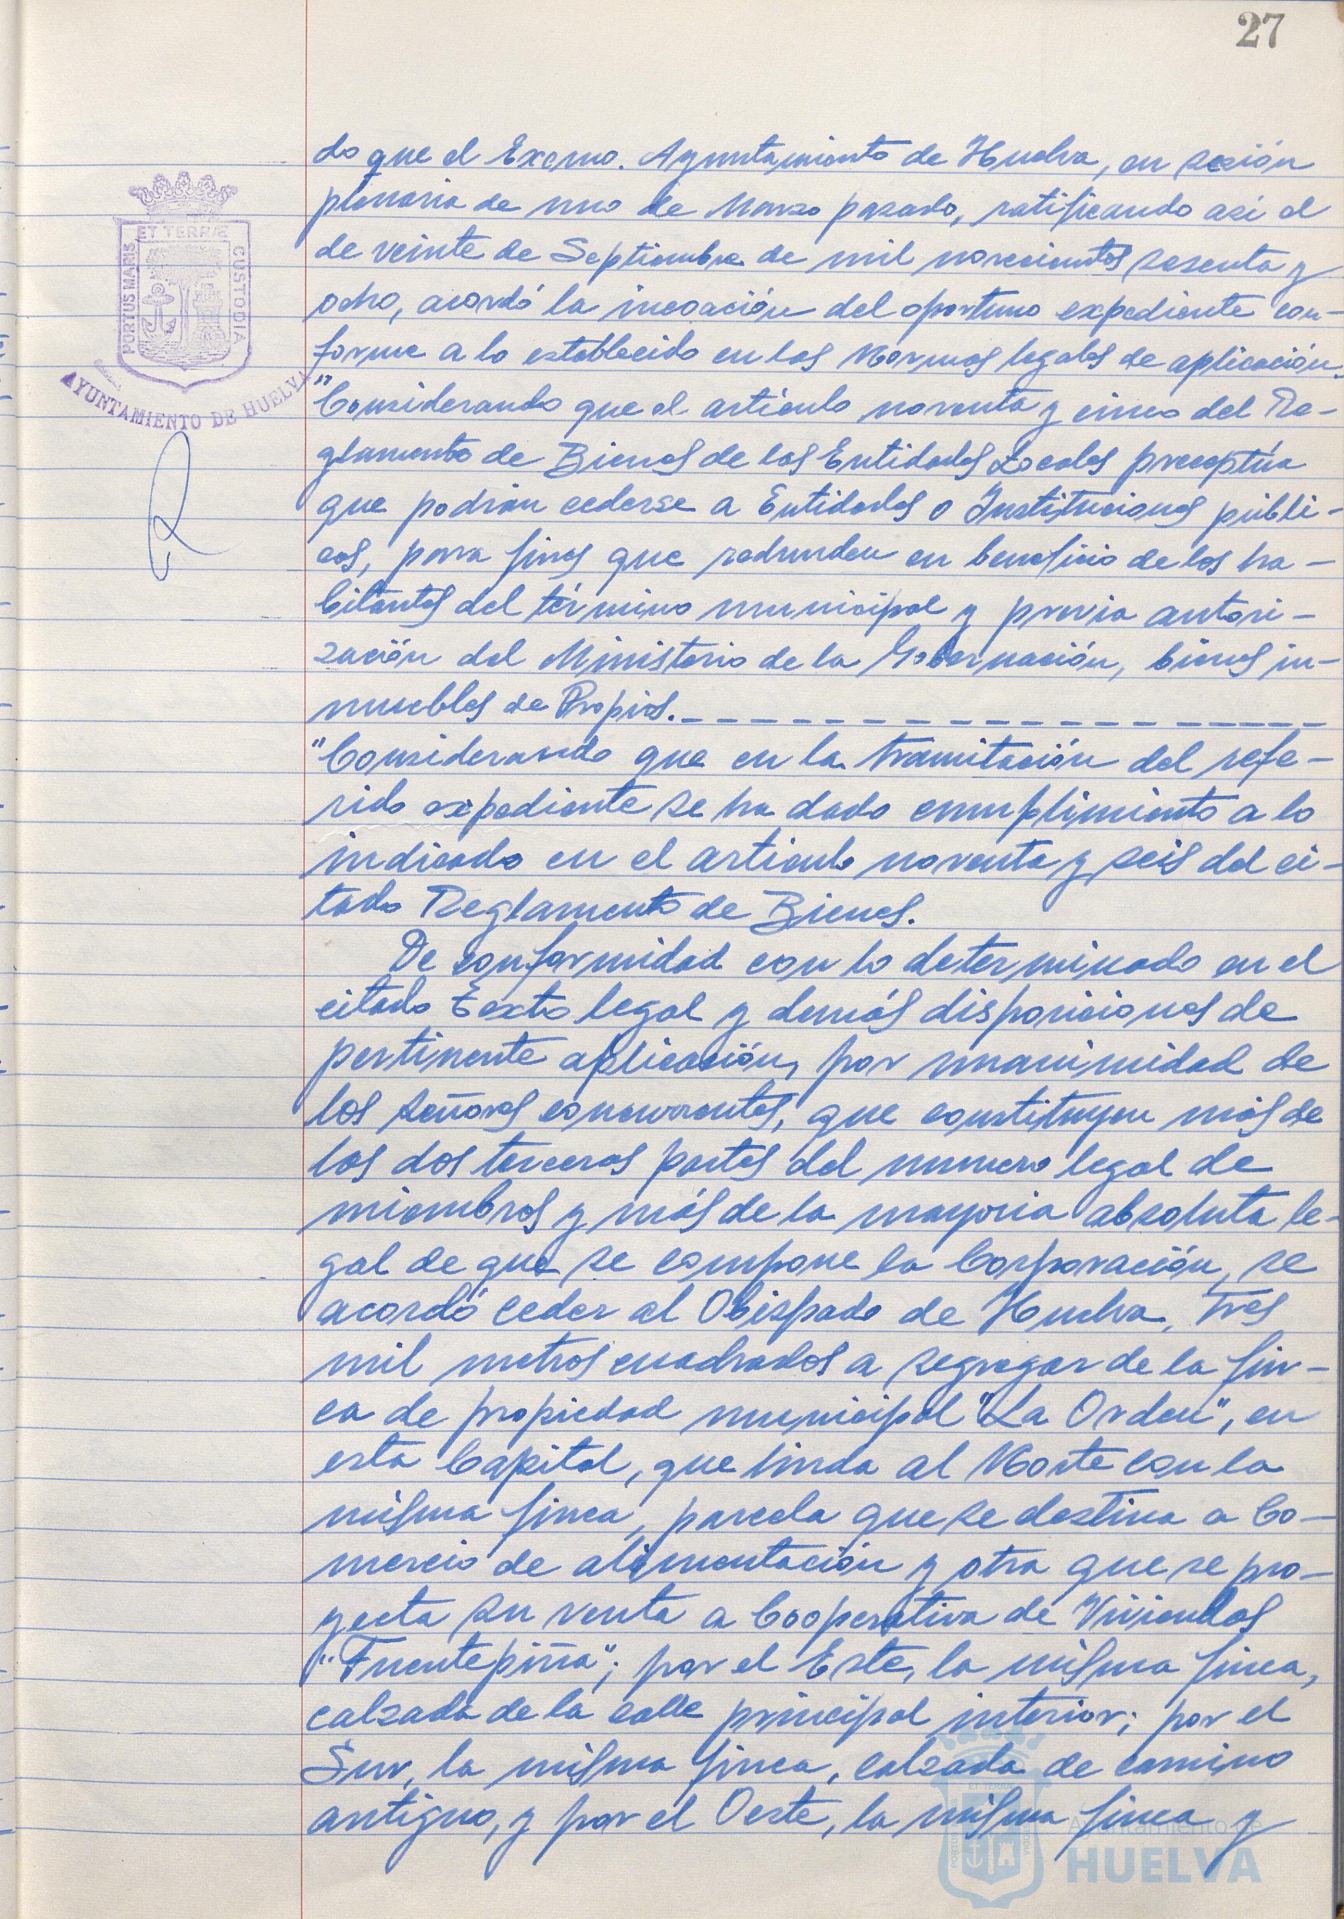 27
do que el Excmo. Ayuntamiento de Huelva, en sesión
plenaria de uno de Marzo pasado, ratificando así el
de veinte de Septiembre de mil novecientos sesenta y
ocho, acordó la incoación del oportuno expediente con-
forme a lo establecido en las Normas legales de aplicación.
"Considerando que el artículo noventa y cinco del Re-
glamento de Bienes de las Entidades Locales preceptúa
que podrán cederse a Entidades o Instituciones públi-
cas, para fines que redunden en beneficio de los ha-
bitantes del término municipal y previa autori-
zación del Ministerio de la Gobernación, bienes in-
muebles de Propios.
"Considerando que en la tramitación del refe-
rido expediente se ha dado cumplimiento a lo
indicado en el artículo noventa y seis del ci-
tado Reglamento de Bienes.
De conformidad con lo determinado en el
citado Texto legal y demás disposiciones de
pertinente aplicación, por unanimidad de
los señores concurrentes, que constituyen más de
las dos terceras partes del numero legal de
miembros y más de la mayoria absoluta le-
gal de que se compone la Corporación, se
acordó ceder al Obispado de Huelva, tres
mil metros cuadrados a segregar de la fin-
ca de propiedad municipal "La Orden", en
esta Capital, que linda al Norte con la
misma finca, parcela que se destina a Co-
mercio de alimentación y otra que se pro-
yecta su venta a Cooperativa de Viviendas
"Fuentepiña"; por el Este, la misma finca,
calzada de la calle principal interior; por el
Sur, la misma finca, calzada de camino
antiguo, y por el Oeste, la misma finca y
PORTUS MARIS
ET TERRÆ
CUSTODIA
AYUNTAMIENTO DE HUELVA
Ayuntamiento de
HUELVA